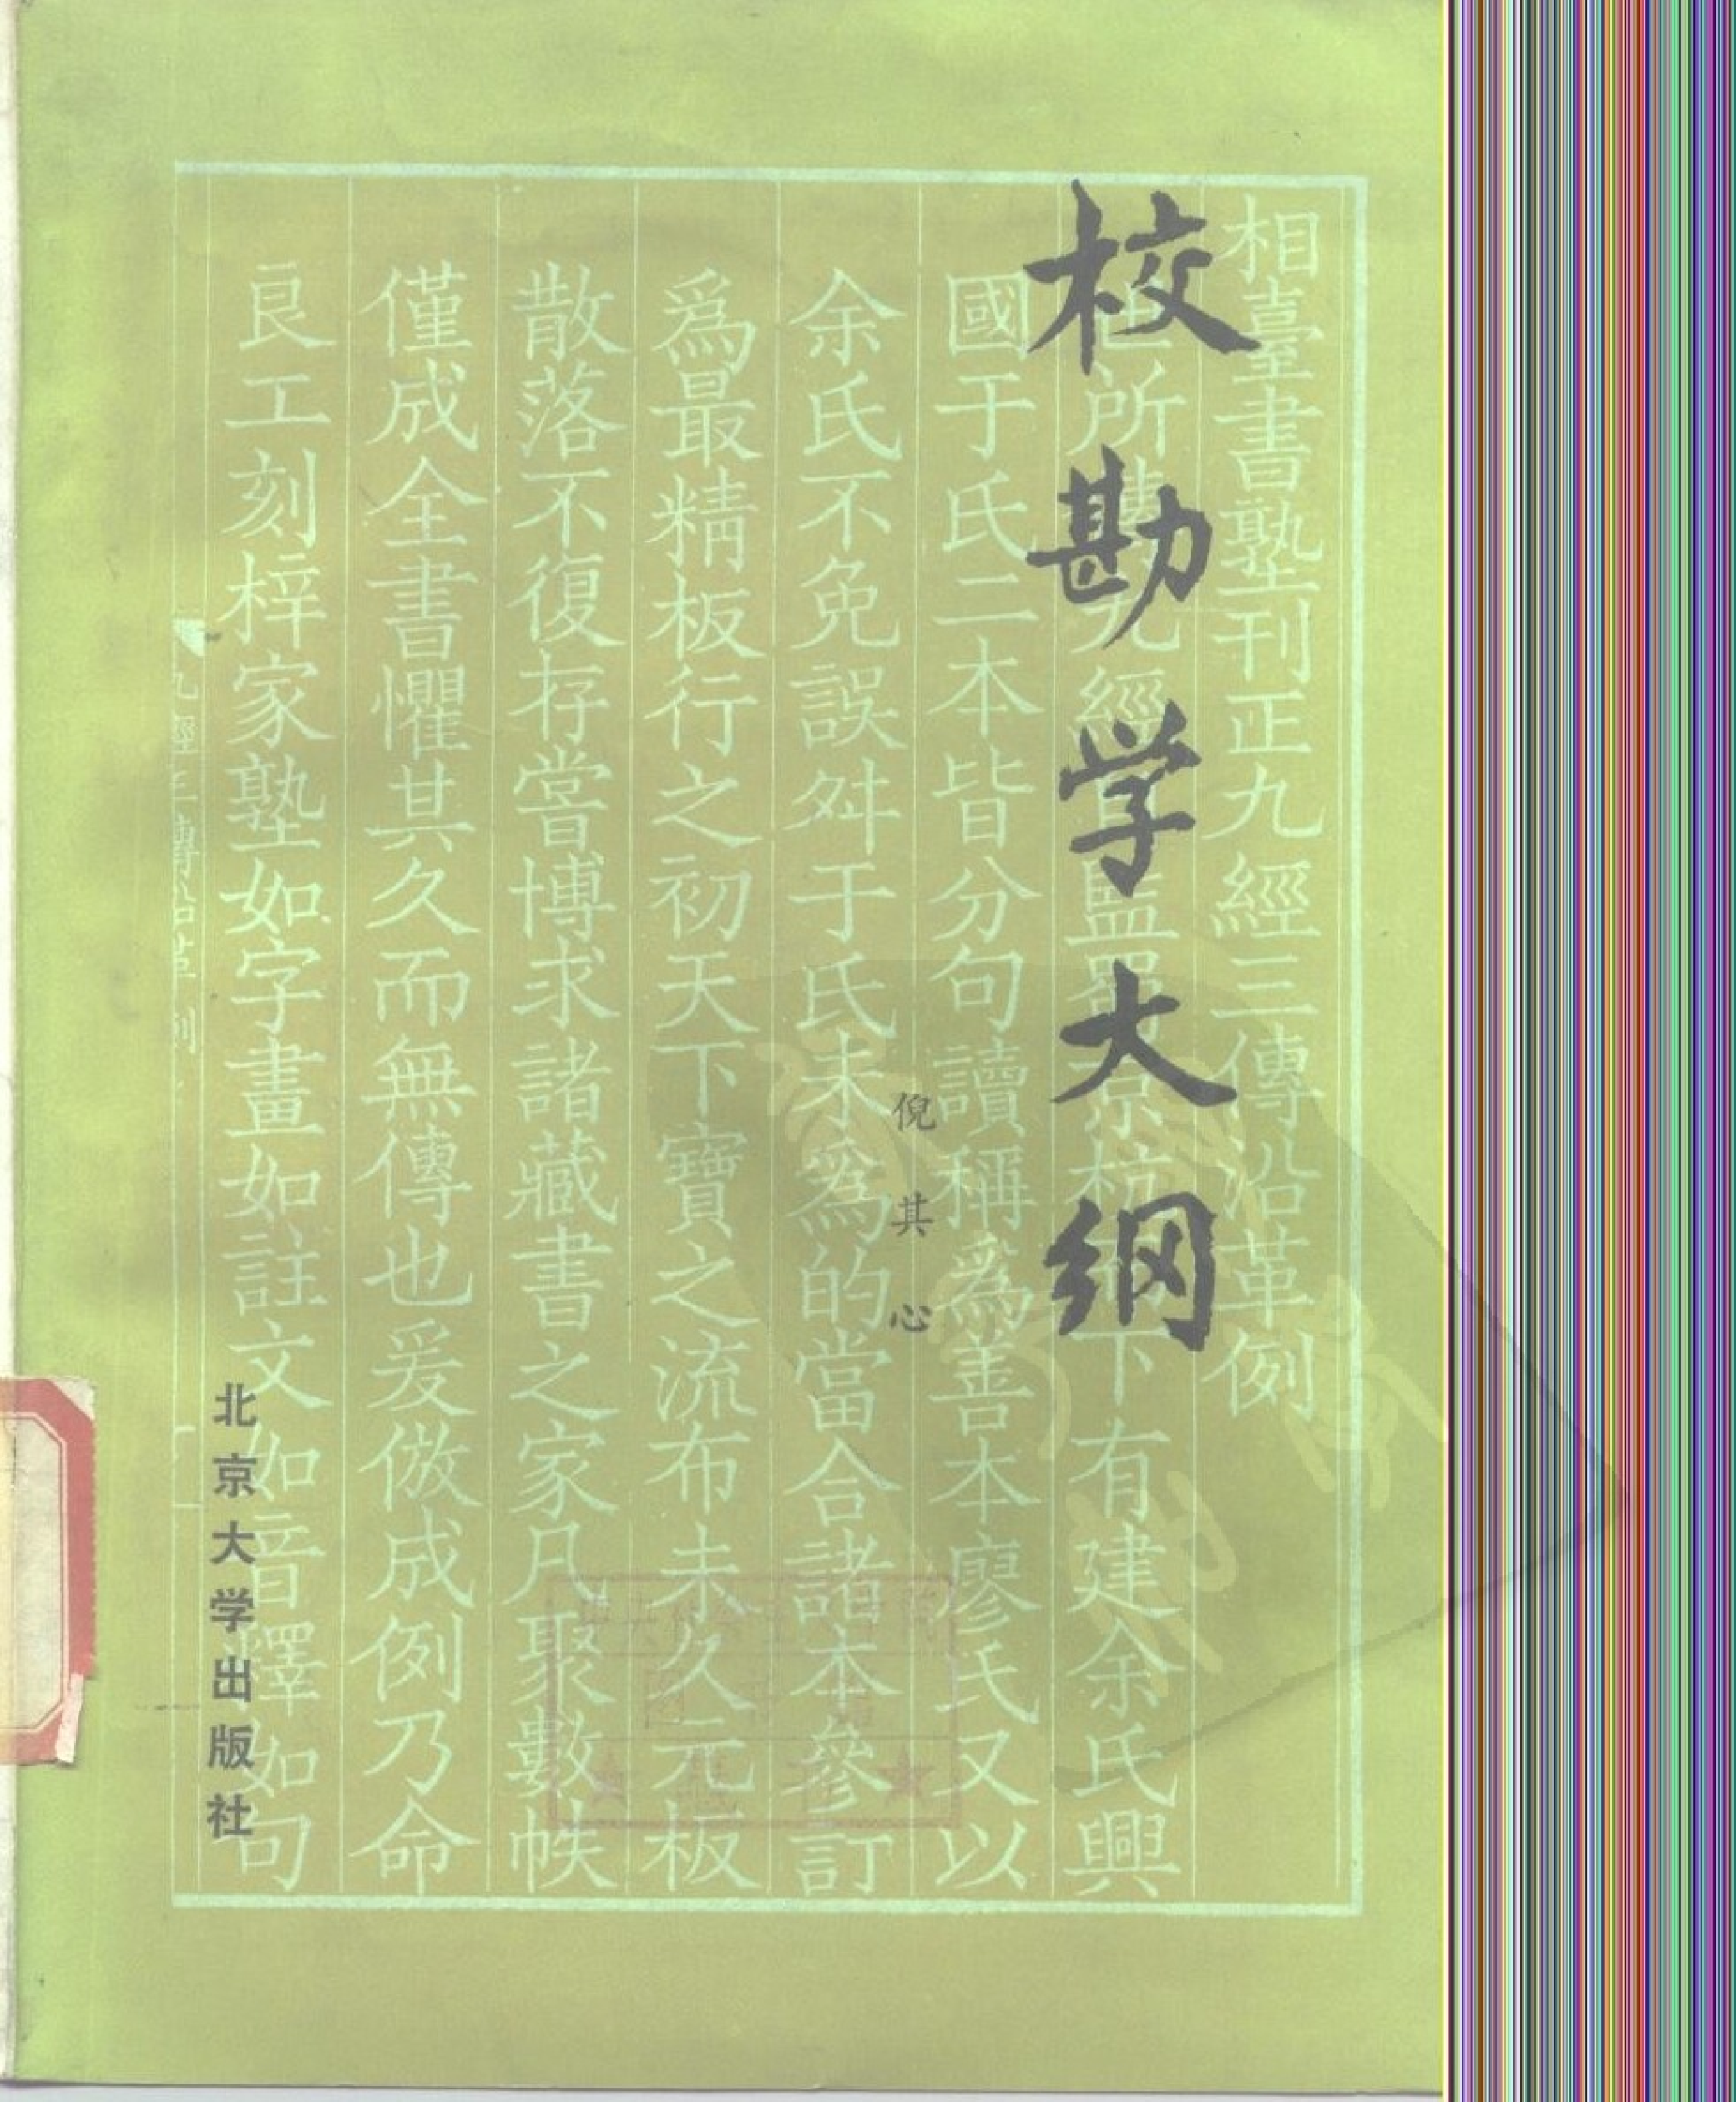 校勘学大纲
倪其心
北京大学出版社
相臺書塾刊正九經三傳沿革例
所 九經 監蜀京杭 下有建余氏興
國于氏二本皆分句讀稱爲善本廖氏又以
余氏不免誤舛于氏未爲的當合諸本參訂
爲最精板行之初天下寶之流布未久元板
散落不復存嘗博求諸藏書之家凡聚數帙
僅成全書懼其久而無傳也爰倣成例乃命
良工刻梓家塾如字畫如註文如音釋如句
九經三傳沿革例